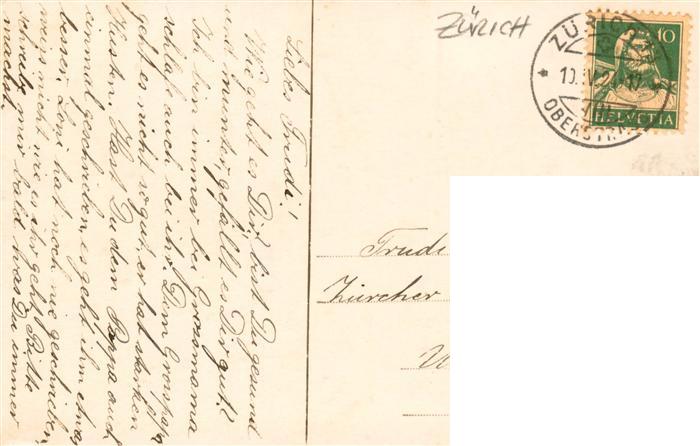 Liebes Trudi!
Wie geht es Dir, bist Du gesund
und munter, gefällt es Dir gut?
Ich bin immer bei Grossmama
schlaf auch bei ihr. Dem Grosspapa
geht es nicht so gut, er hat starken
Husten. Hast Du dem Pappa auch
einmal geschrieben, es geht ihm etwas
besser, Loni hat noch nie geschrieben,
weis nicht wie es ihr geht. Bitte
schreib mir bald was Du immer
machst.
ZÜRICH
ZÜRICH
10.IV.2
OBERST
10
HELVETIA
Trudi
Zürcher